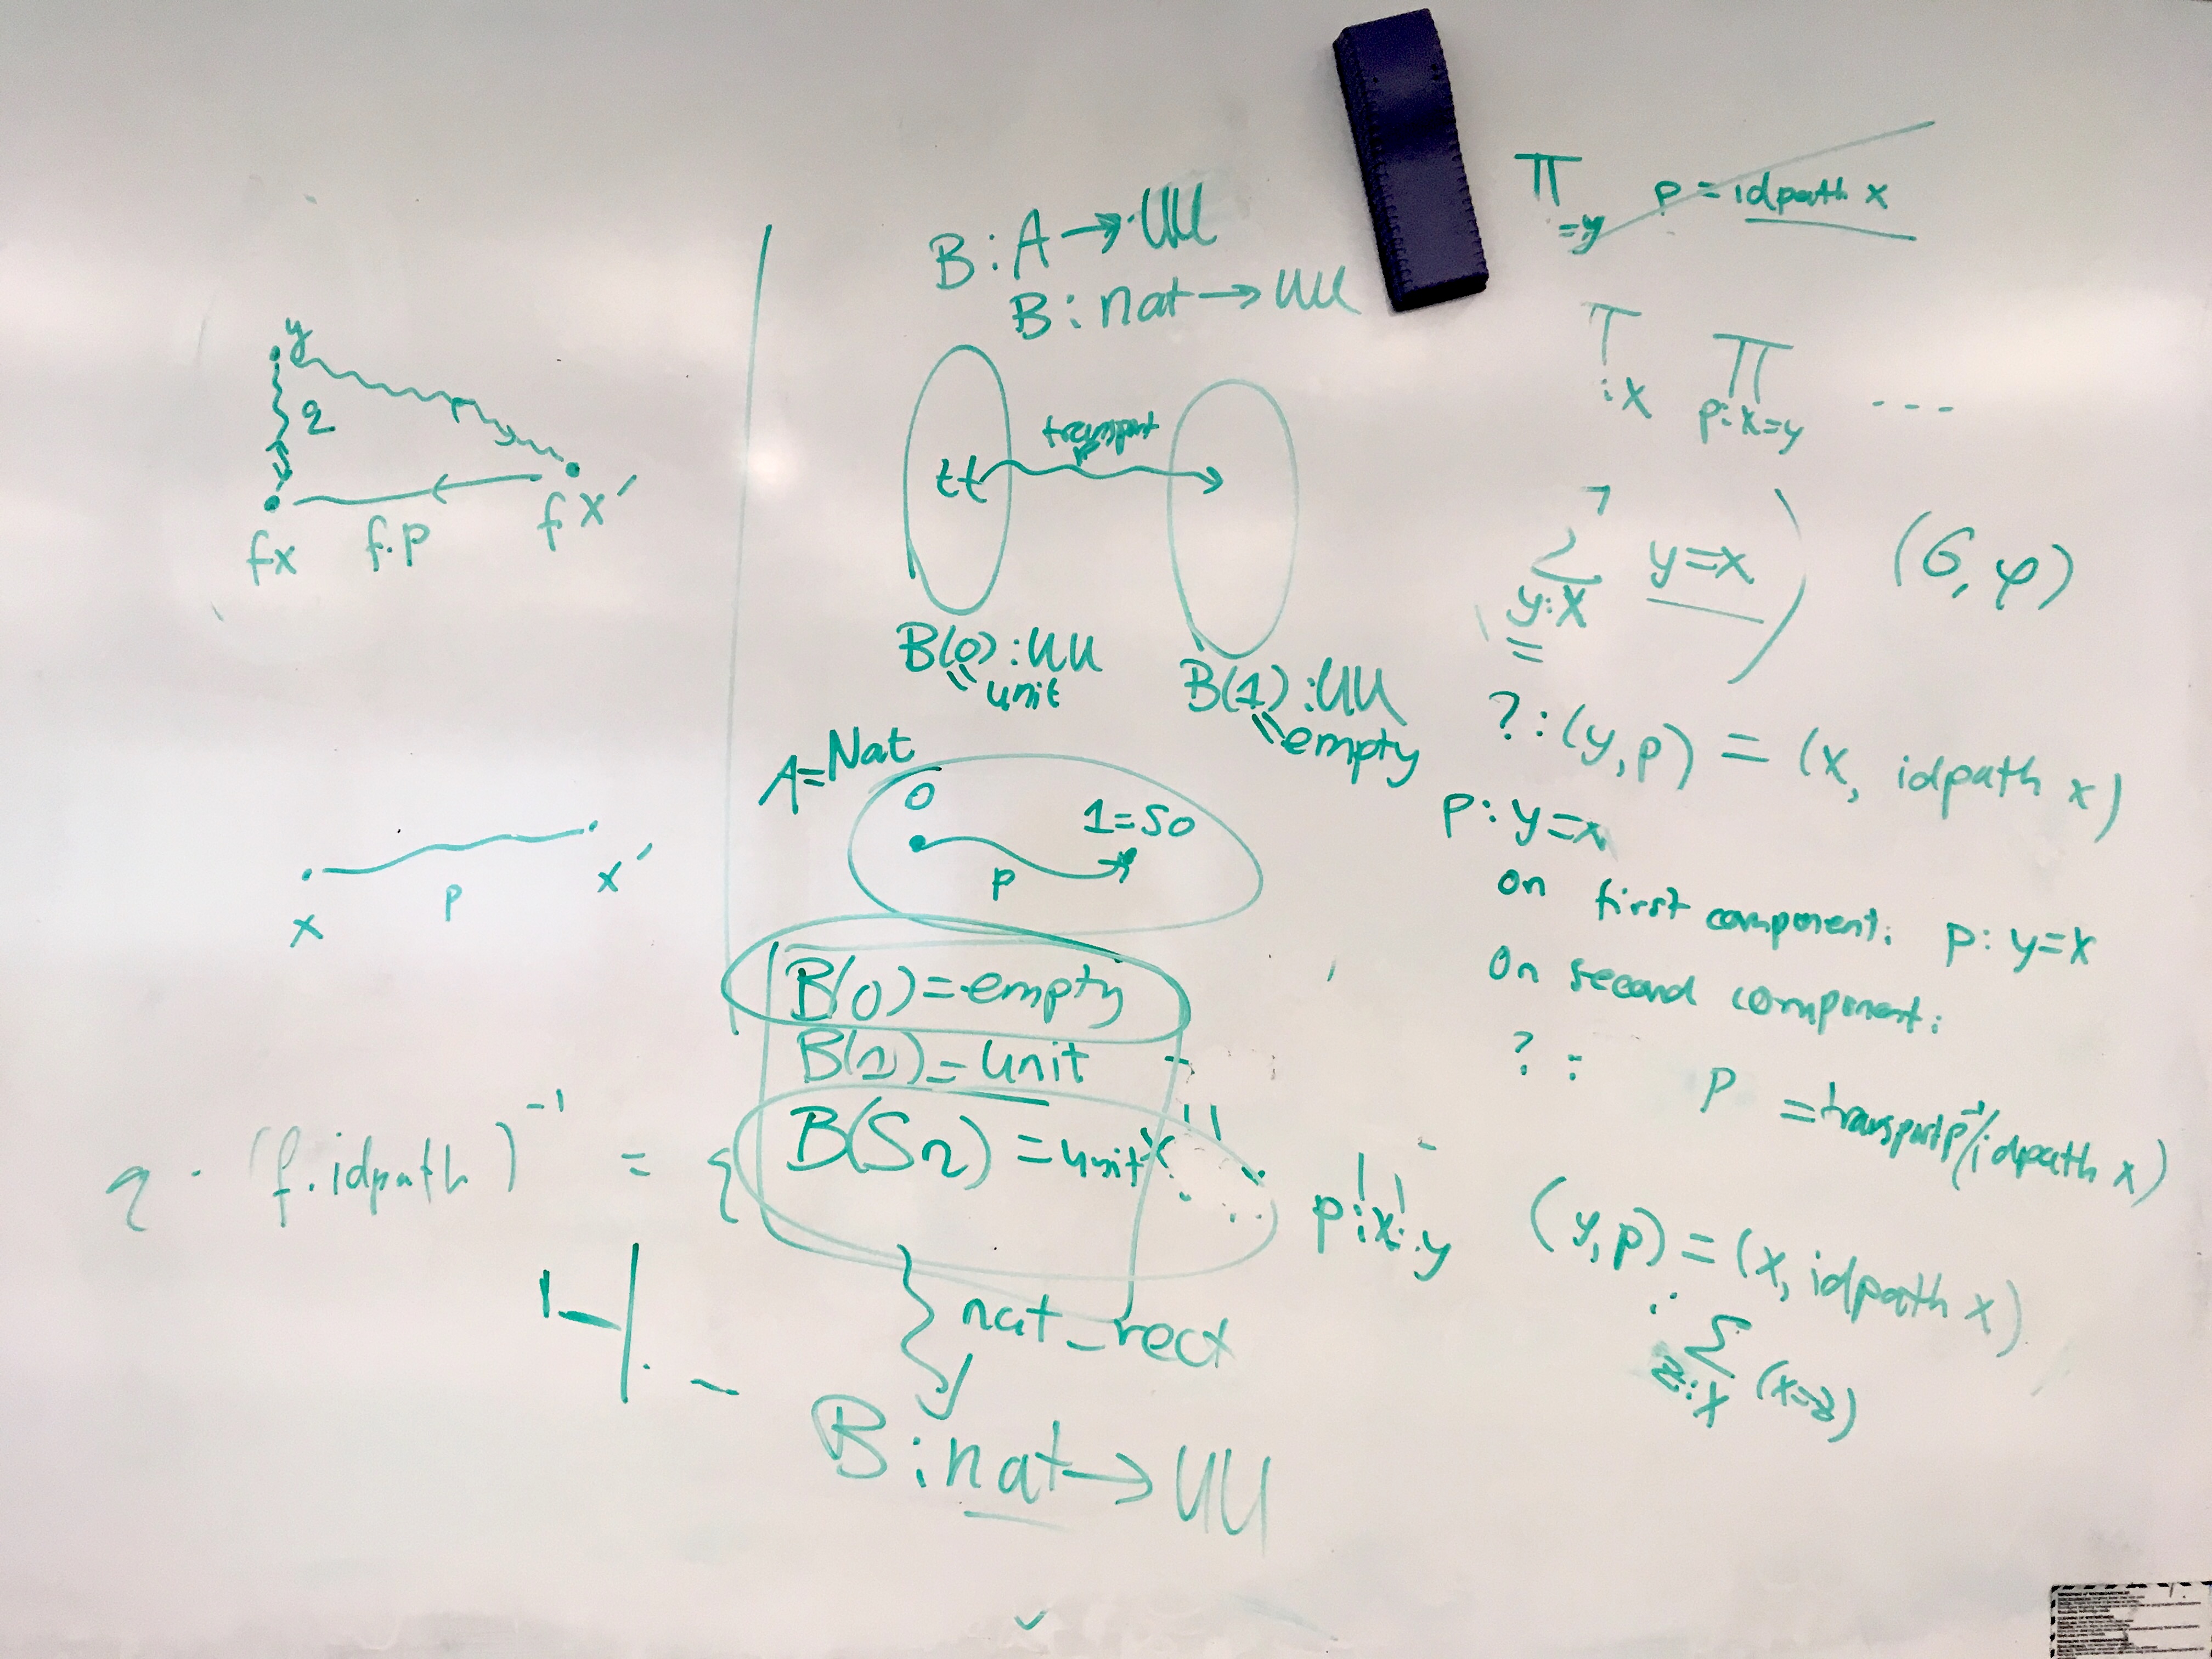 y
q
p
fx
f.p
fx′
x
p
x′
q · (f. idpath)⁻¹ =
B : A → UU
B : nat → UU
tt
transport
B(0) : UU
unit
B(1) : UU
empty
A = Nat
0
1 = S0
p
B(0) = empty
B(1) = unit
B(Sn) = unit
nat_rect
B : nat → UU
Π p = idpath x
=y
Π
:X p:x=y ---
Σ y=x ) (G, φ)
y:X
? : (y,p) = (x, idpath x)
p : y=x
on first component: p : y=x
On second component:
? : p = transport p⁻¹ (idpath x)
p:x.y
(y,p) = (x, idpath x)
Σ (x=z)
z:X